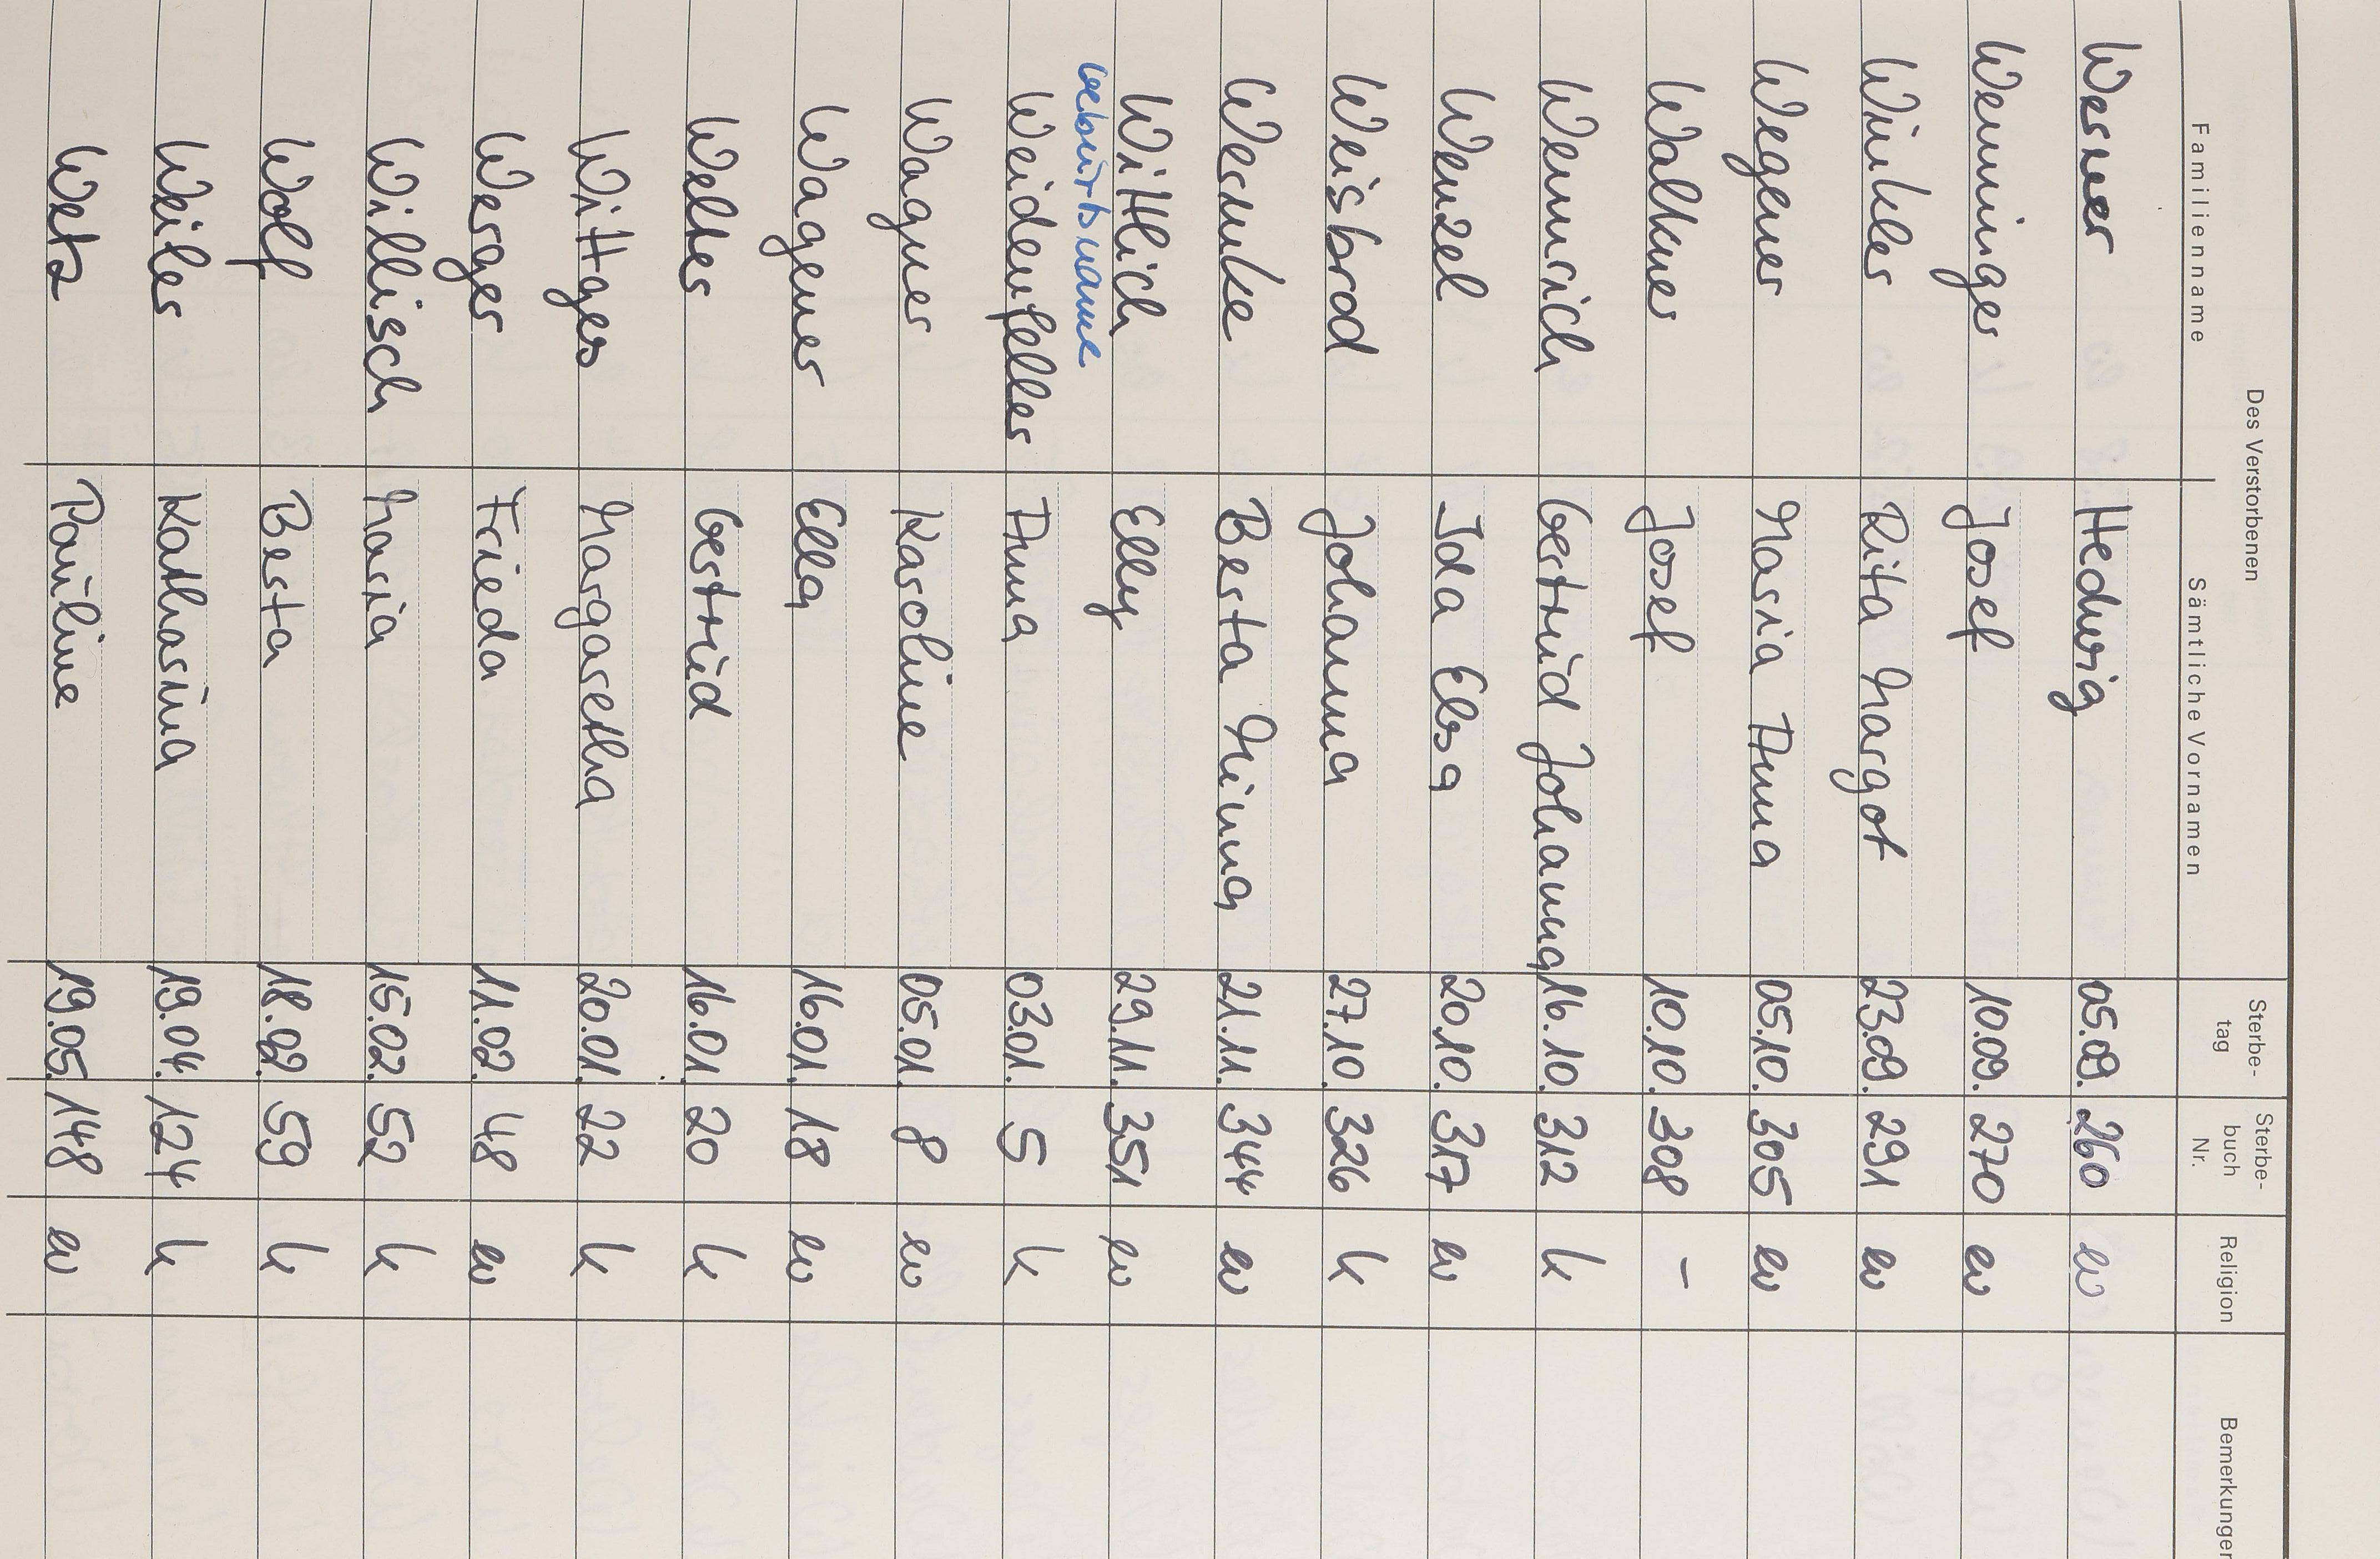 Des Verstorbenen
Familienname Sämtliche Vornamen Sterbe-tag Sterbe-buch Nr. Religion Bemerkungen
Werner Hedwig 05.09. 260 ev
Wenninger Josef 10.09. 270 ev
Winkler Rita Margot 23.09. 291 ev
Wegener Maria Anna 05.10. 305 ev
Walkner Josef 10.10. 308 -
Wennrich Gertrud Johanna 16.10. 312 k
Wenzel Ida Elsa 20.10. 317 ev
Weisbrod Johanna 27.10. 326 k
Wernke Berta Minna 21.11. 344 ev
Wittlich Elly 29.11. 351 ev
Geburtsname
Weidenfeller Anna 03.01. 5 k
Wagner Karoline 05.01. 8 ev
Wagener Ella 16.01. 18 ev
Welter Gertrud 16.01. 20 k
Wittges Margaretha 20.01. 22 k
Werger Frieda 11.02. 48 ev
Willisch Maria 15.02. 52 k
Wolf Berta 18.02. 59 k
Weiler Katharina 19.04. 124 k
Wetz Pauline 19.05. 148 ev